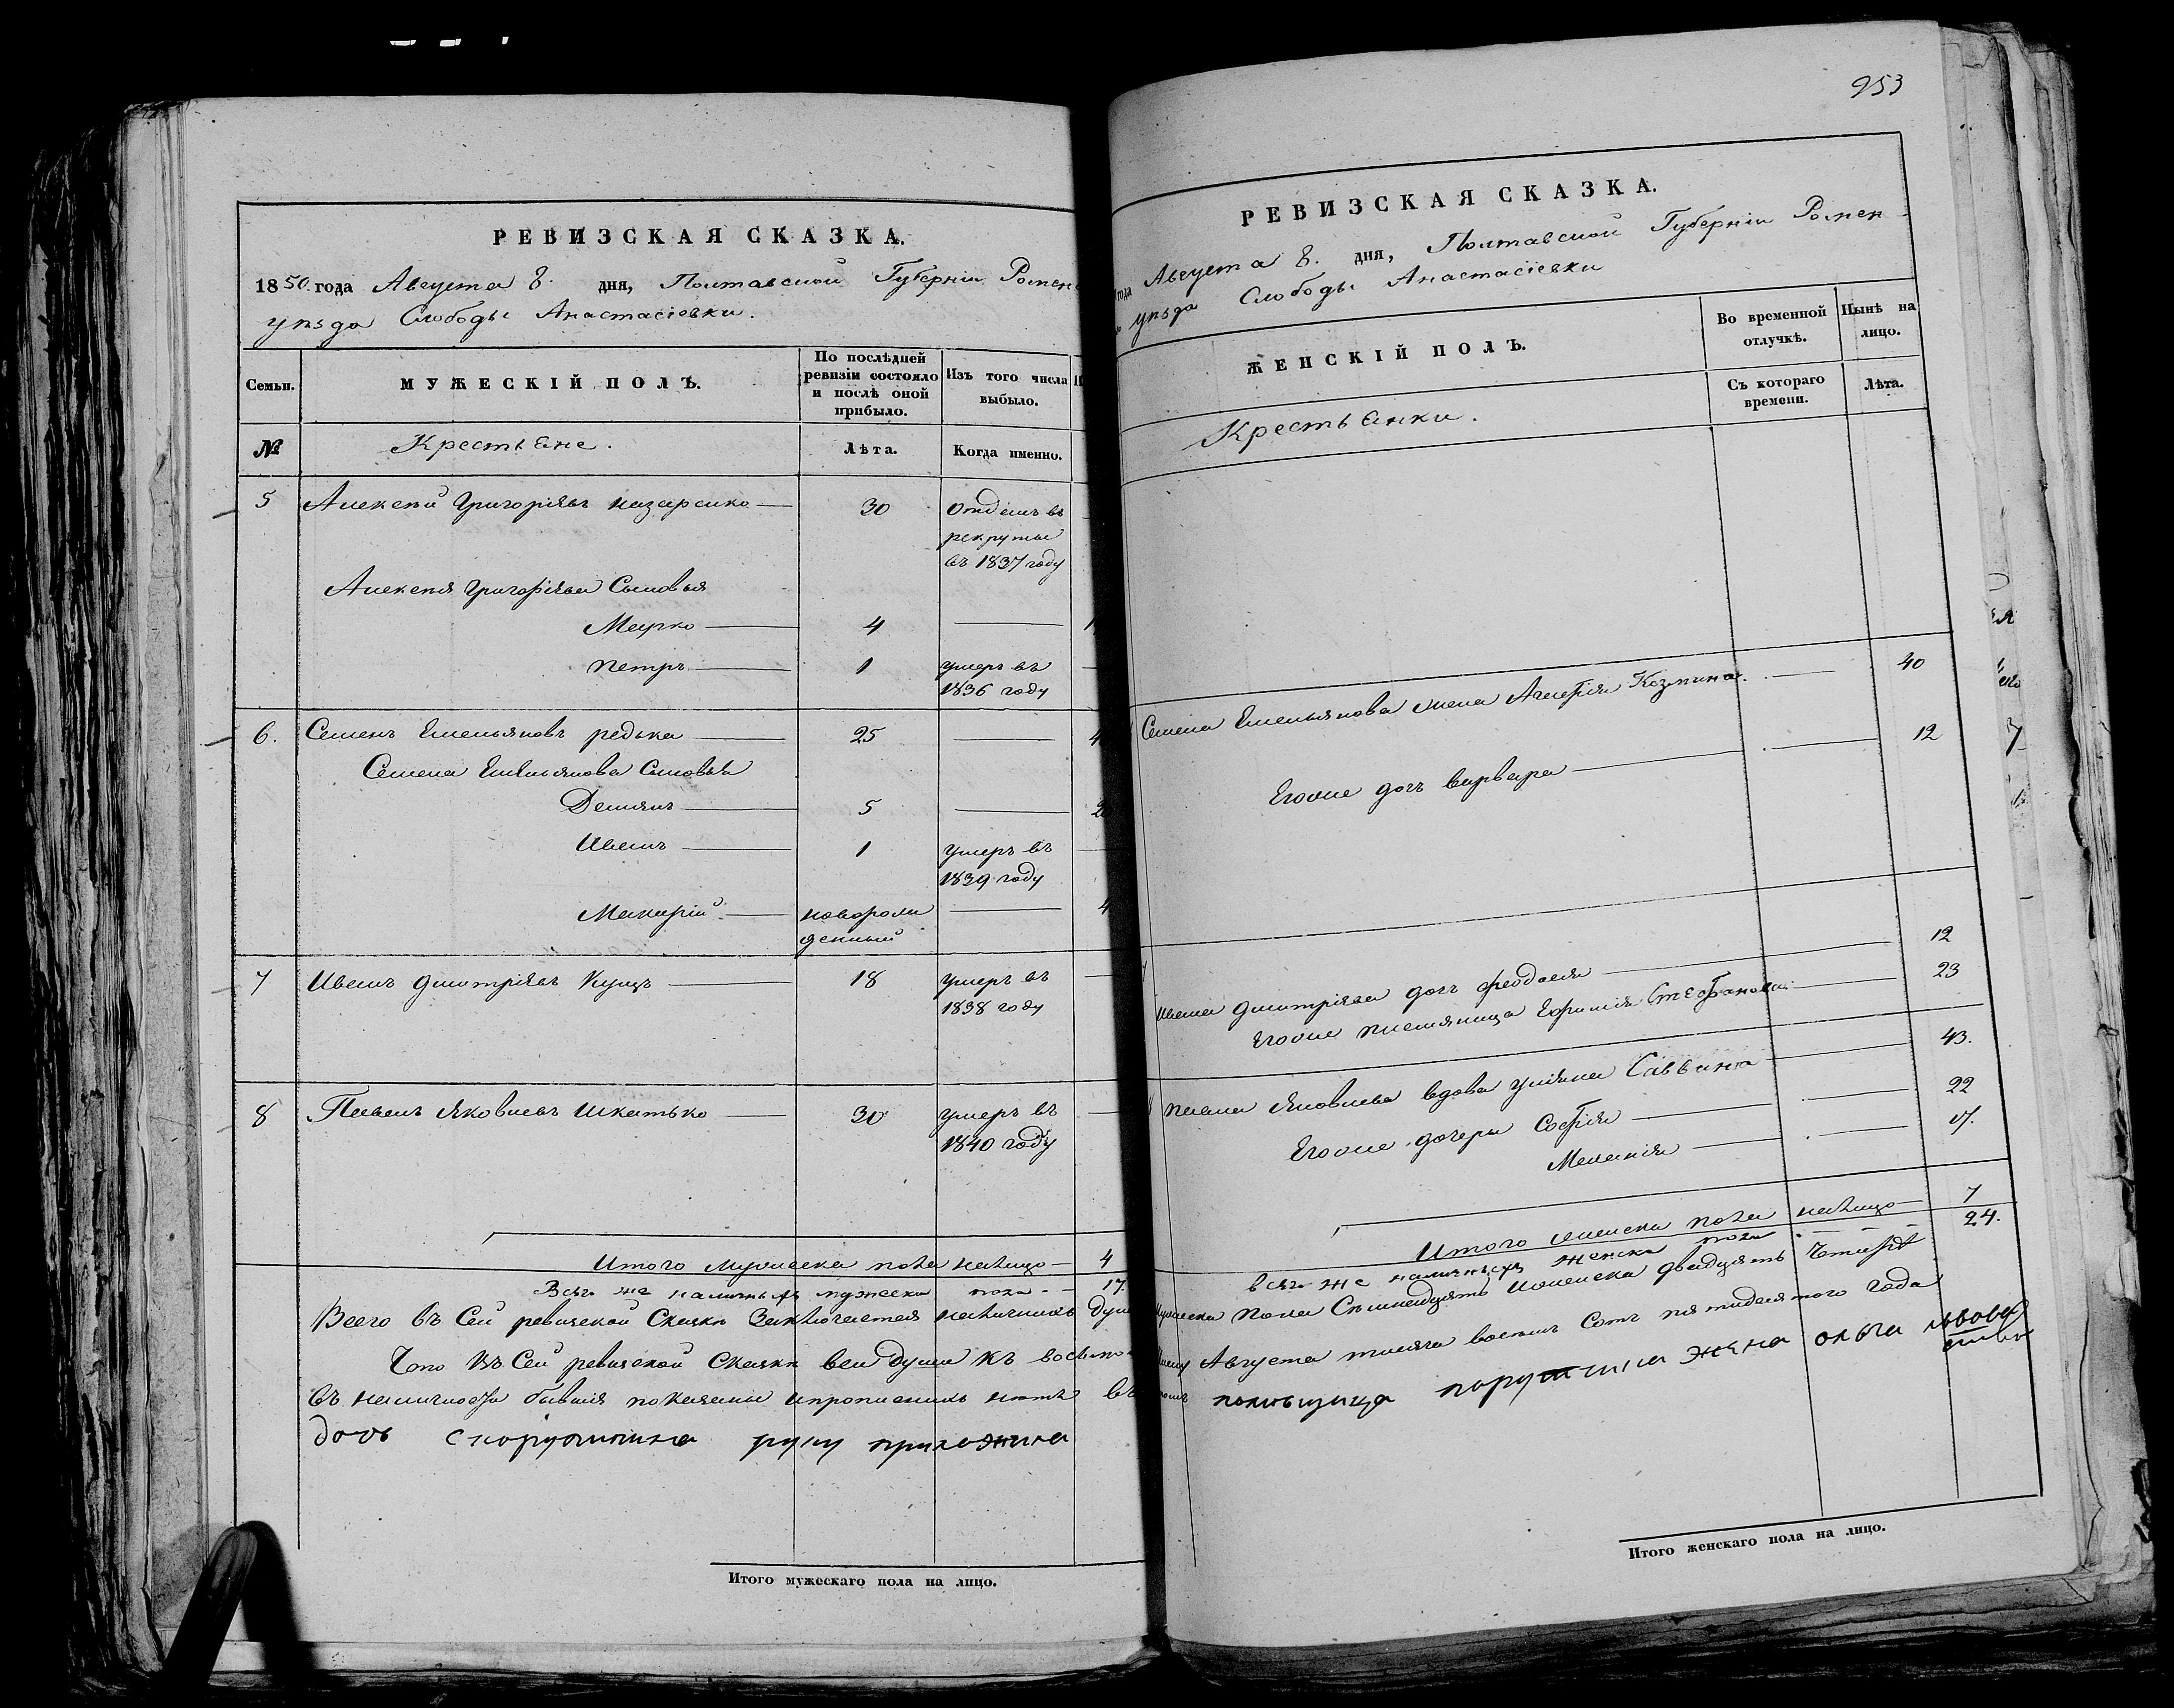 РЕВИЗСКАЯ СКАЗКА.
1850. года Августа 8. дня, Полтавской Губерніи Ромен
уѣзда Слободы Анастасіевки.
Семьи.
МУЖЕСКІЙ ПОЛЪ.
По послѣдней ревизіи состояло и послѣ оной прибыло.
Изъ того числа выбыло.
№
Крестьяне.
Лѣта.
Когда именно.
5 Алексѣй Григоріевъ назаренко 30 Отданъ въ
рекруты
въ 1837 году
Алексѣя Григоріева Сыновья
Марко 4
Петръ 1 умеръ въ
1836 году
6. Семенъ Емельяновъ редька 25
Семена Емельянова Сыновья
Демянъ 5
Иванъ 1 Умеръ въ
1839 году
Макарій новорож
денный
7 Иванъ Дмитріевъ Куцъ 18 умеръ въ
1838 году
8 Павелъ Яковлевъ Шкатько 30 умеръ въ
1840 году
Итого мужеска пола налицо 4
Всего же наличныхъ мужеска пола 17.
Всего въ Сей ревизской Сказкѣ Заключается наличныхъ Душ
Что въ Сей ревизской Сказкѣ все души къ
въ наличности бывшія показаны и прописныхъ нѣтъ въ
дочь руку приложила
Итого мужескаго пола на лицо.
953
РЕВИЗСКАЯ СКАЗКА.
года Августа 8. дня, Полтавской Губерніи Ромен
уѣзда Слободы Анастасіевки
ЖЕНСКІЙ ПОЛЪ.
Во временной отлучкѣ.
Нынѣ на лицо.
Съ котораго времени.
Лѣта.
Крестьянки.
Семена Емельянова жена Агафія Козмина 40
Егоже дочь варвара 12
Ивана Дмитріева дочь феодосія 12
Егоже племяница Ефимія Стефанова 23
Павла Яковлева вдова уліяна Саввина 43.
Егоже дочери Софія 22
Меланія 17.
Итого женска пола налицо 7
всего же наличныхъ женска пола 24.
мужеска Пола Семнадцать иженска двадцать Четыре
Августа тысяча восемь Сотъ пятидесятого года
помѣщица порутчика жена ольга львова
Итого женскаго пола на лицо.